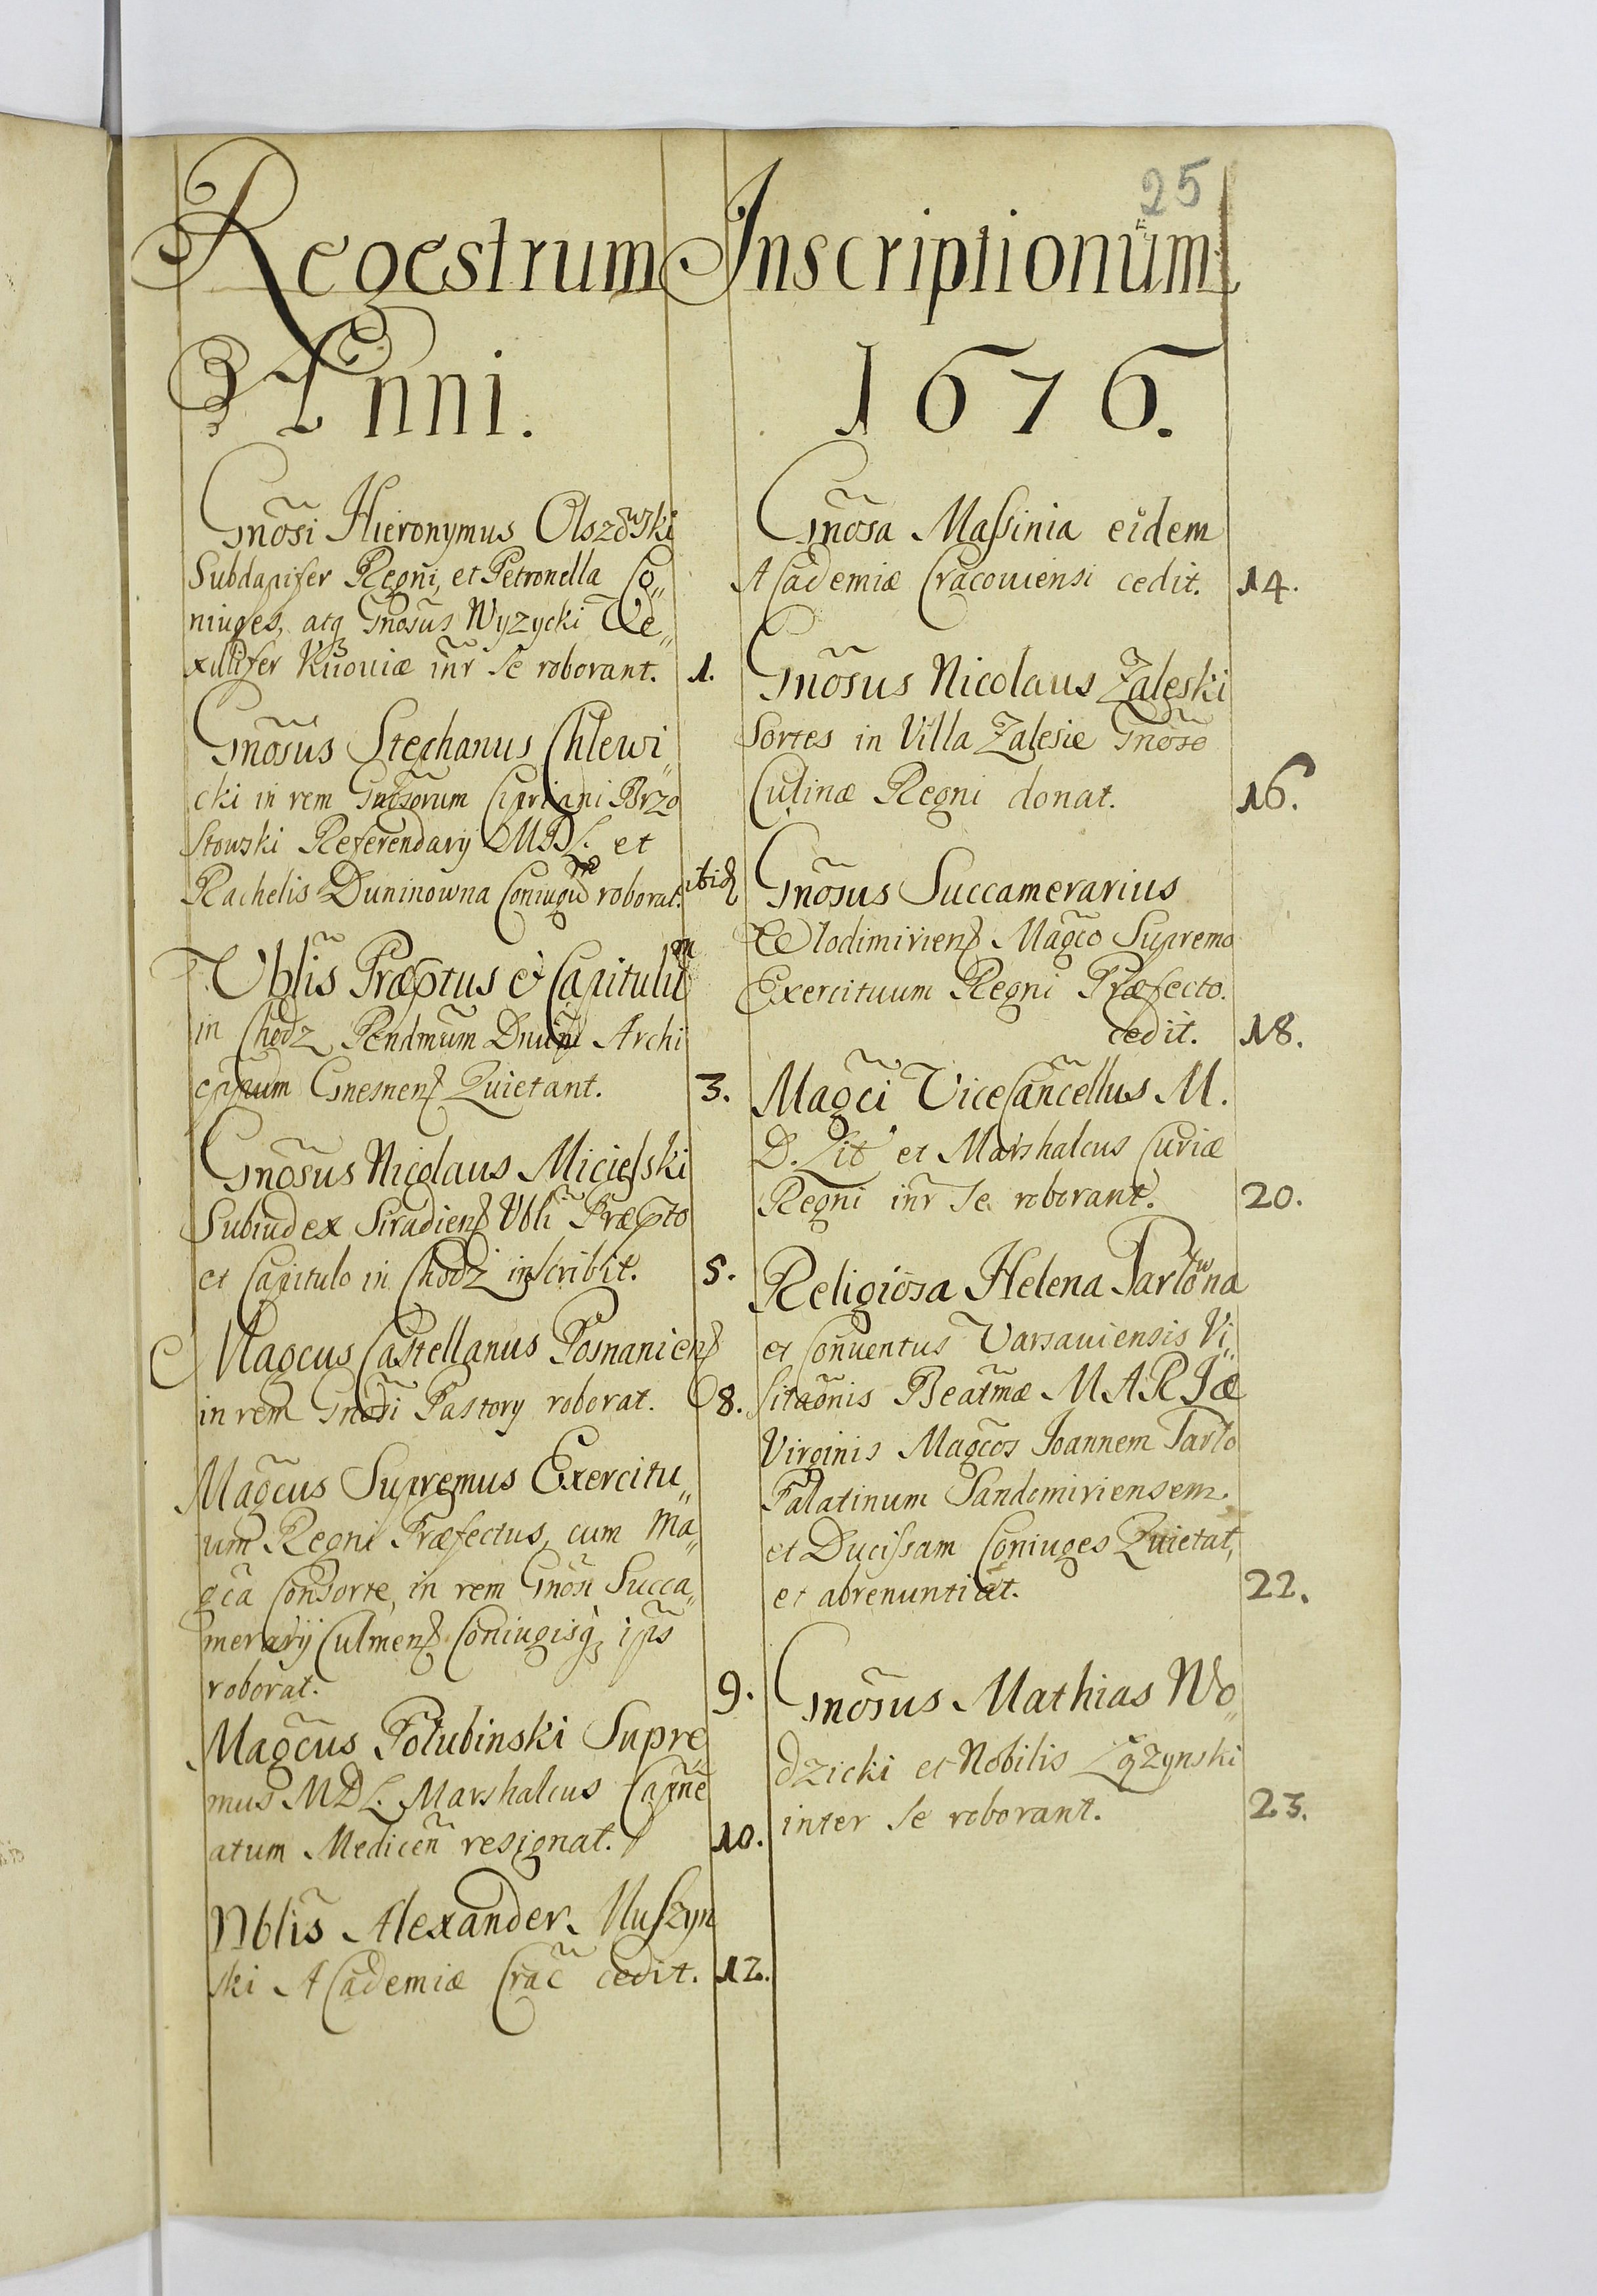 25
Regestrum Inscriptionum
Anni. 1676.
Gnõsi Hieronymus Olszowski
Subdapifer Regni, et Petronella Co„
niuges, atq Gnõsus Wyzycki Ve„
xillifer Kijoviæ inr̃ se roborant. 1.
Gnõsus Stephanus Chlewi„
cki in rem Gnõsorum Cipriani Brzo
stowski Referendarij MDL. et
Rachelis Duninowna Coniugũ roborat. ibid
Vblis Præptus et Capitulum
in Chodz Rendmũm Dnũm Archi
eppum Gnesnens Quietant. 3.
Gnõsus Nicolaus Micielski
Subiudex Siradiens Vbli Præpto
et Capitulo in Chodz inscribit. 5.
Magcus Castellanus Posnaniens
in rem Gnõsi Pastory roborat. 8.
Magcus Supremus Exercitu„
um Regni Præfectus, cum Ma„
gca Consorte, in rem Gnõsi Succa„
merarij Culmens Coniugisq ips
roborat. 9.
Magcus Polubinski Supre„
mus MDL. Marshalcus Capne
atum Medicen resignat. 10.
Nblis Alexander Muszyn
ski Academiæ Crac cedit. 12.
Gnõsa Massinia eidem
Academiæ Cracouiensi cedit. 14.
Gnõsus Nicolaus Zaleski
Sortes in Villa Zalesie Gnõso
Culinæ Regni donat. 16.
Gnõsus Succamerarius
Wlodimiriens Magco Supremo
Exercituum Regni Præfecto.
cedit. 18.
Magci ViceCancellus M.
D. Lit et Marshalcus Curiæ
Regni inr̃ se roborant. 20.
Religiosa Helena Tarlowna
et Conuentus Varsauiensis Vi„
sitaonis Beatmæ MARIæ
Virginis Magcos Joannem Tarlo
Palatinum Sandomiriensem
et Ducissam Coniuges Quietat,
et abrenuntiat. 22.
Gnõsus Mathias Wo„
dzicki et Nobilis Lozynski
inter se roborant. 23.